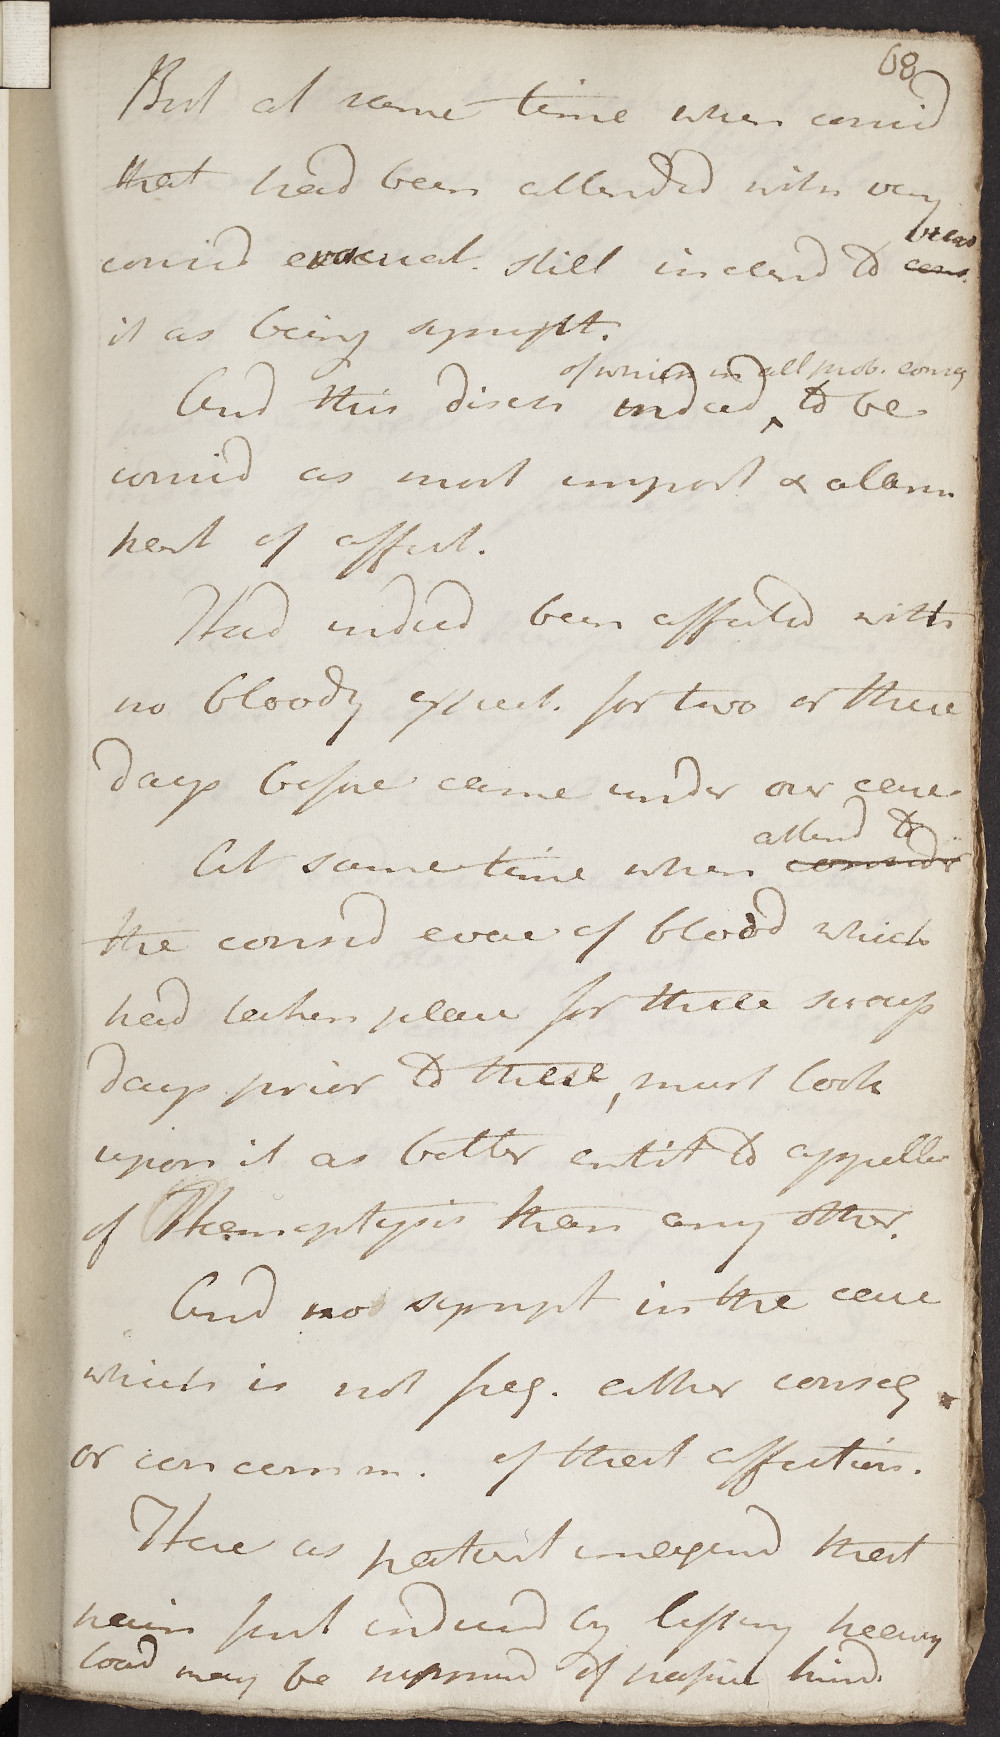 68
But at same time when consid
that had been attended with very
consid evacuat. still inclind to
view
it as being sympt.
of which in all prob. conseq
And this diseas indeed, to be
consid as most import & alarm
part of affect.
Had indeed been affected with
no bloody expect. for two or three
days before came under our care
attend to
At same time when consider
the consid evac of blood which
had taken place for three or four
days prior to these, must look
upon it as better entit to appella
of Hemoptysis than any other.
And no sympt in the case
which is not freq. either conseq
or concomm. of that affection.
Here as patient imagind that
pain first induced by lifting heavy
load may be supposed of passive kind.